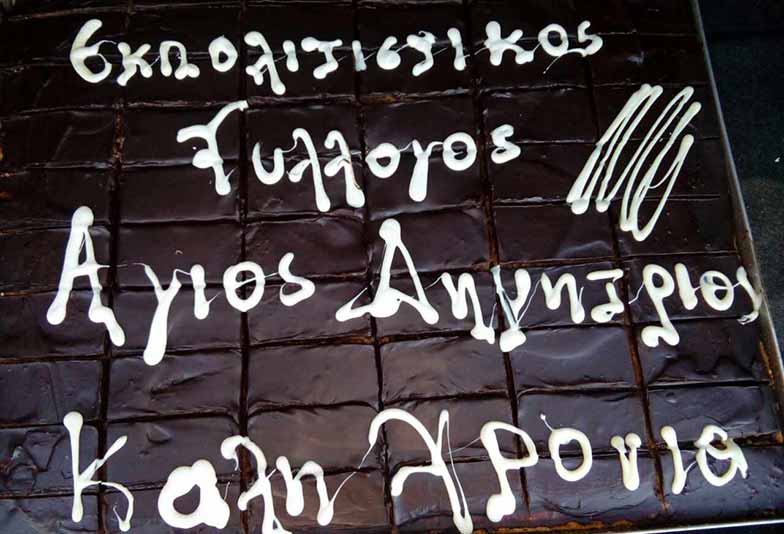 Εκπολιτιστικος
Συλλογος
Αγιος Δημητριου
Καλη Χρονια